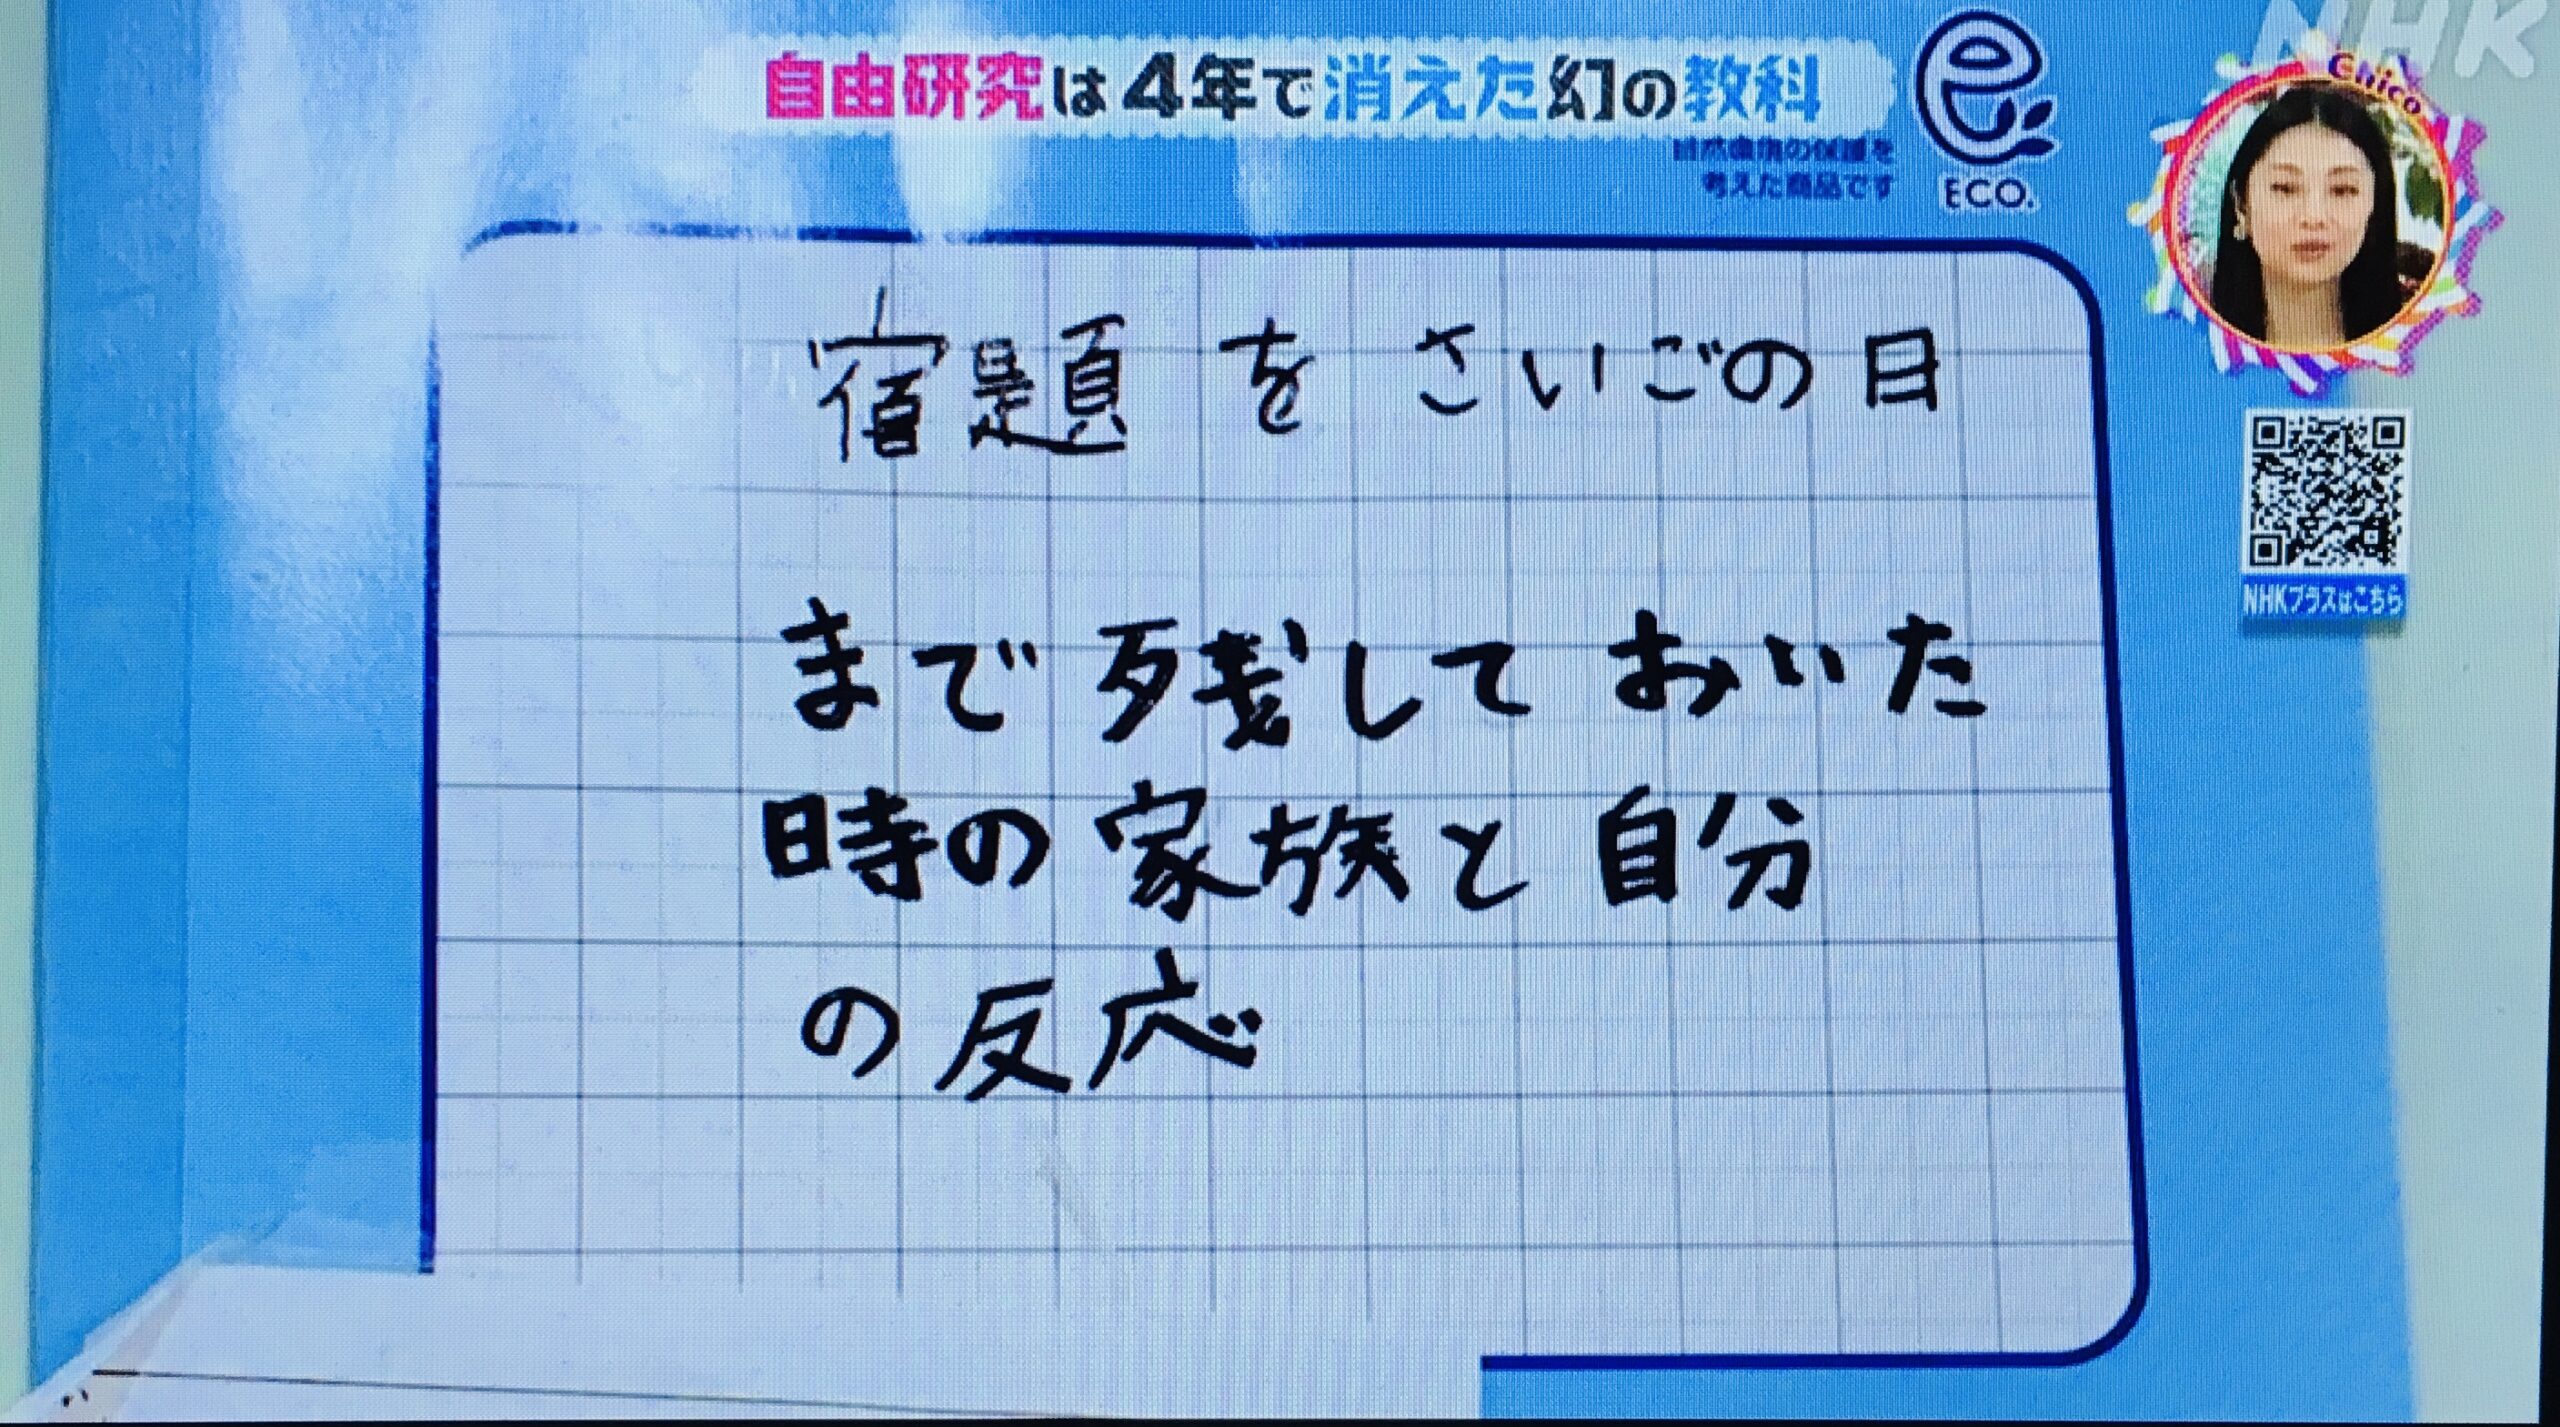 NHK
自由研究は4年で消えた幻の教科
Chico
自然環境の保護を
考えた商品です
ECO.
宿題をさいごの日
まで残しておいた
時の家族と自分
の反応
NHKプラスはこちら